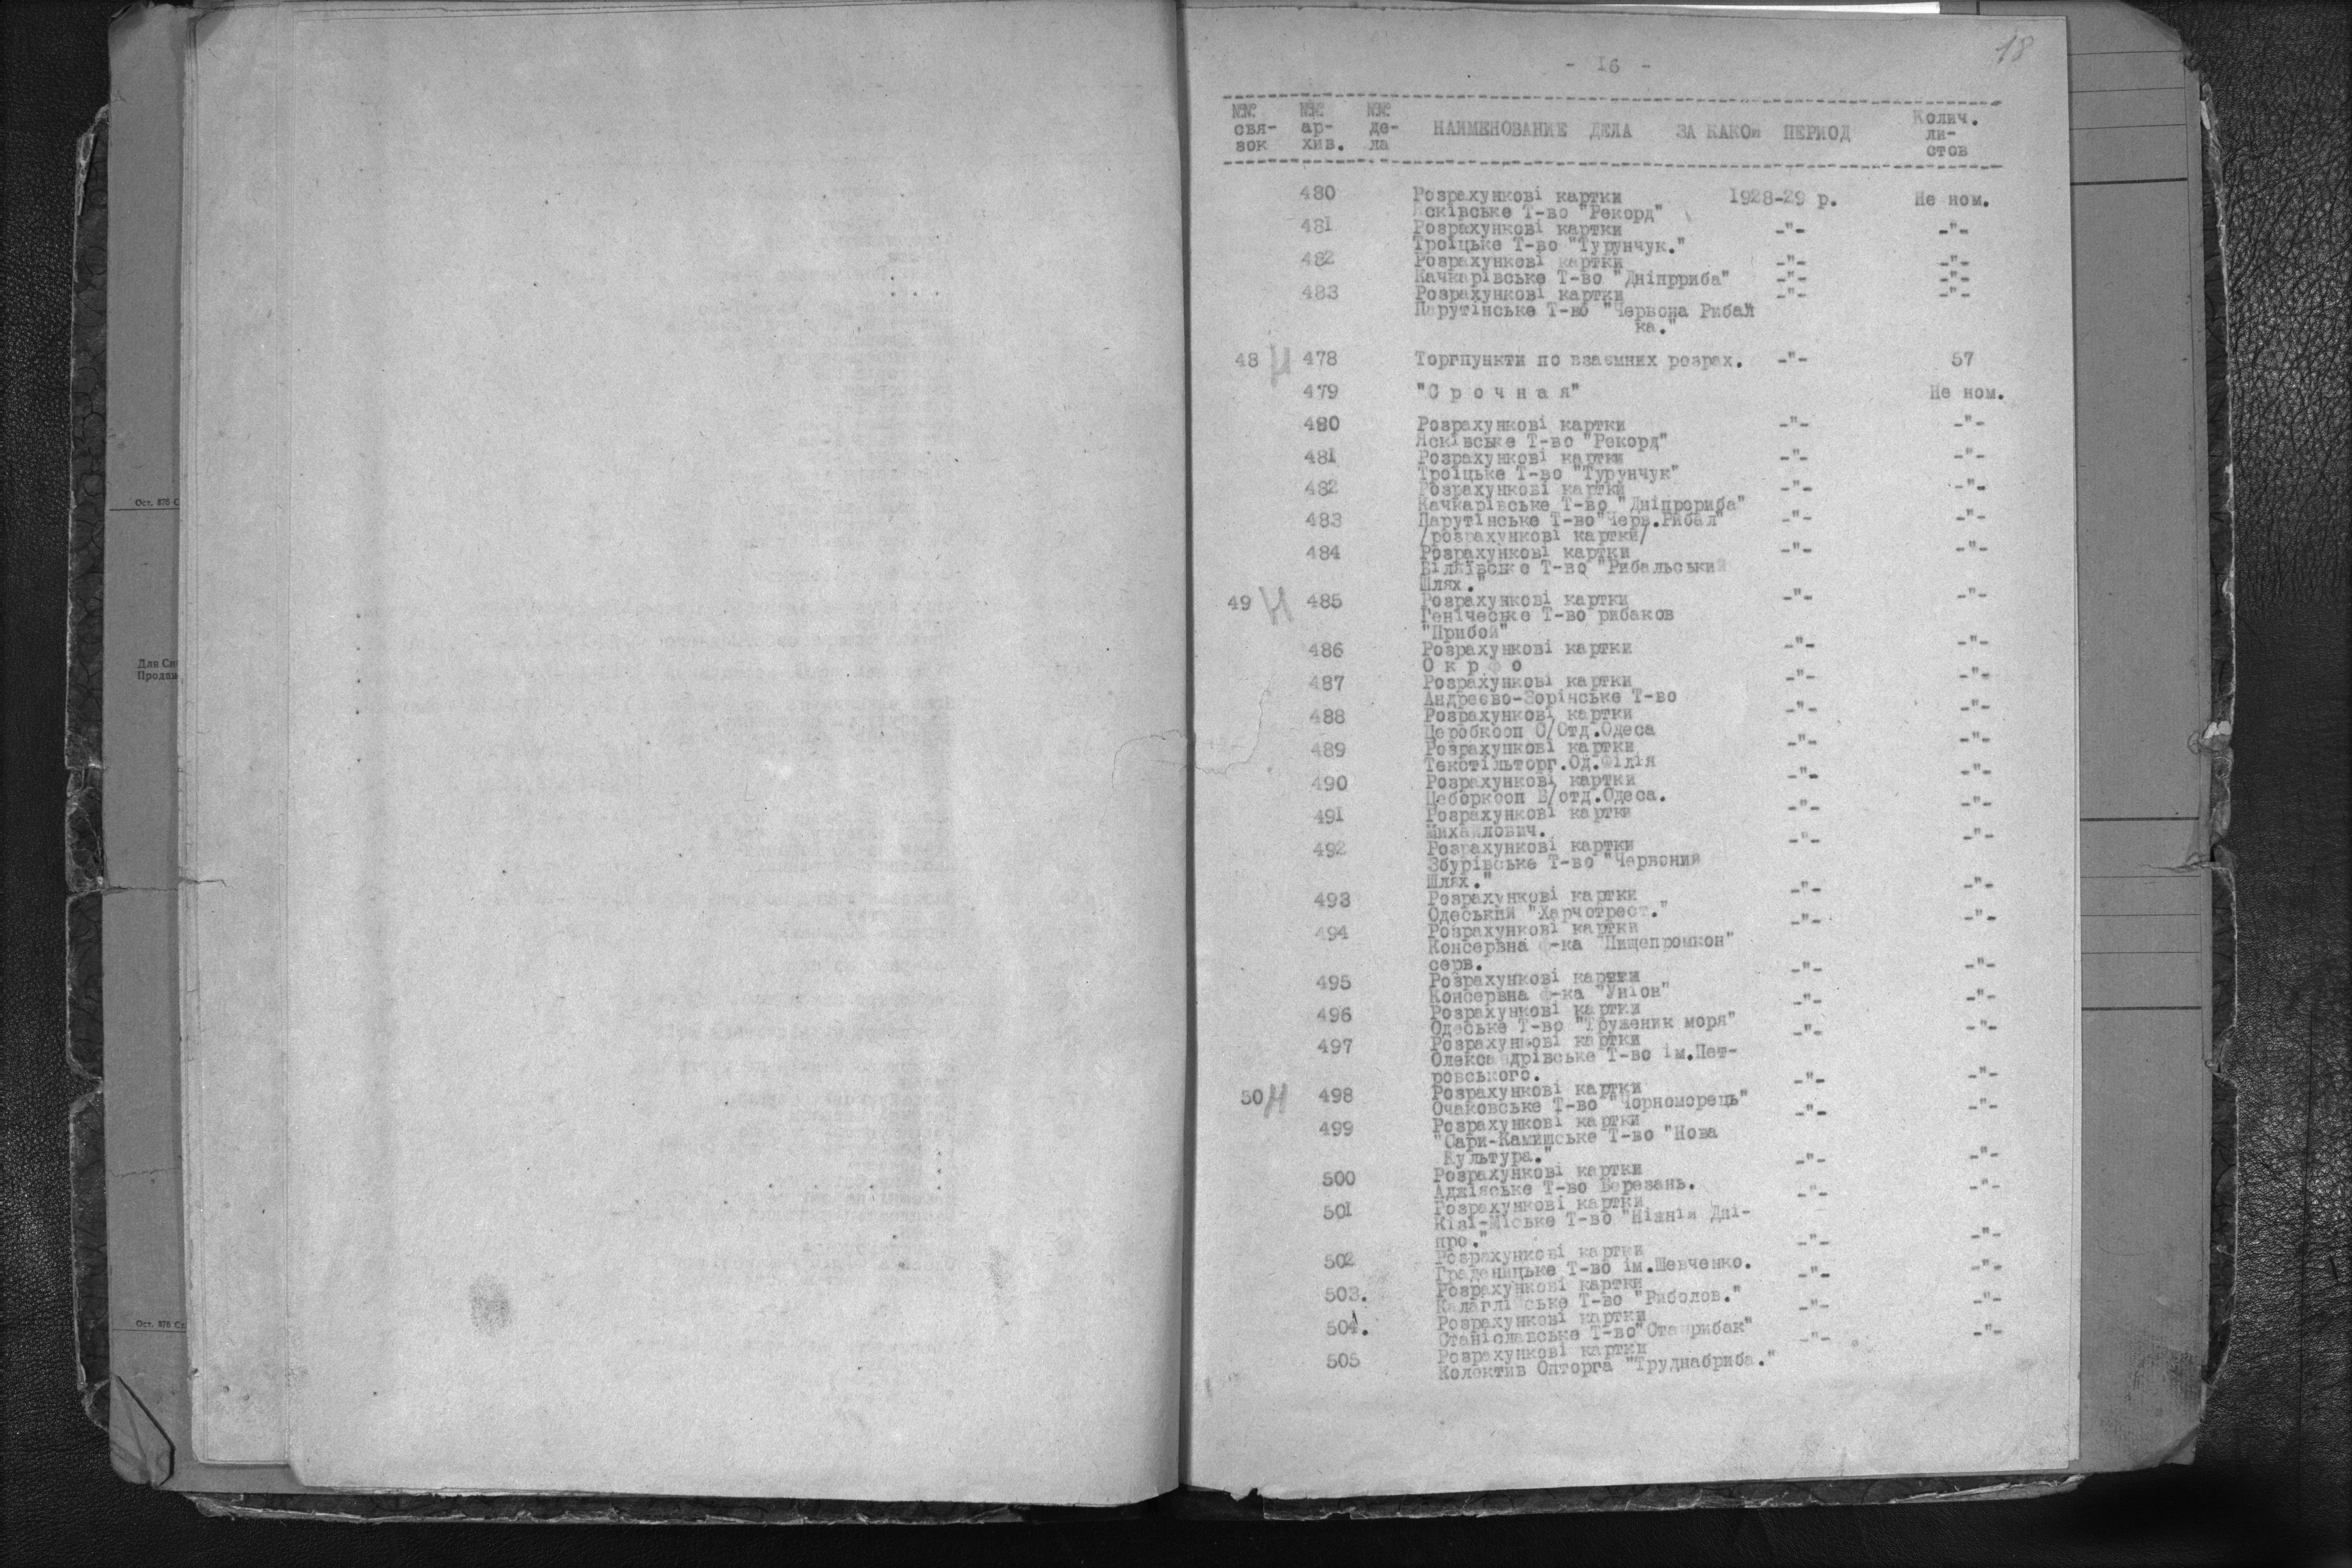 18
- I6 -
№№ №№ №№ Колич.
свя- ар- де- НАИМЕНОВАНИЕ ДЕЛА ЗА КАКОЙ ПЕРИОД ли-
зок хив. ла стов
480 Розрахункові картки 1928-29 р. Не ном.
Ясківське Т-во "Рекорд"
481 Розрахункові картки -"- -"-
Троїцьке Т-во "Турунчук."
482 Розрахункові картки -"- -"-
Качкарівське Т-во "Дніпрриба" -"- -"-
483 Розрахункові картки -"- -"-
Парутінське Т-во "Червона Рибал
ка."
48 Н 478 Торгпункти по взаємних розрах. -"- 57
479 "С р о ч н а я" Не ном.
480 Розрахункові картки -"- -"-
Ясківське Т-во "Рекорд"
481 Розрахункові картки -"- -"-
Троїцьке Т-во "Турунчук"
482 Розрахункові картки -"- -"-
Качкарівське Т-во "Дніпрориба"
483 Парутінське Т-во "Черв.Рибал" -"- -"-
/розрахункові картки/
484 Розрахункові картки -"- -"-
Біляївське Т-во "Рибальський
Шлях."
49 Н 485 Розрахункові картки -"- -"-
Генічеське Т-во рибаков
"Прибой"
486 Розрахункові картки -"- -"-
О к р ф о
487 Розрахункові картки -"- -"-
Андреєво-Зорінське Т-во
488 Розрахункові картки -"- -"-
Церобкооп С/Отд.Одеса
489 Розрахункові картки -"- -"-
Текстільторг.Од.Філія
490 Розрахункові картки -"- -"-
Цеборкооп Б/отд.Одеса.
491 Розрахункові картки -"- -"-
Михайлович.
492 Розрахункові картки -"- -"-
Збурівське Т-во "Червоний
Шлях."
493 Розрахункові картки -"- -"-
Одеський "Харчотрест."
494 Розрахункові картки -"- -"-
Консервна ф-ка "Пищепромкон"
серв.
495 Розрахункові картки -"- -"-
Консервна ф-ка "Уніон"
496 Розрахункові картки -"- -"-
Одеське Т-во "Труженик моря"
497 Розрахункові картки -"- -"-
Олександрівське Т-во ім.Пет-
ровського.
50 Н 498 Розрахункові картки -"- -"-
Очаковське Т-во "Чорноморець"
499 Розрахункові картки -"- -"-
"Сари-Камишське Т-во "Нова
Культура."
500 Розрахункові картки -"- -"-
Аджіяське Т-во Березань.
501 Розрахункові картки -"- -"-
Кізі-Міське Т-во "Ніжній Дні-
про."
502 Розрахункові картки -"- -"-
Граденицьке Т-во ім.Шевченко.
503. Розрахункові картки -"- -"-
Калаглійське Т-во "Риболов."
504. Розрахункові картки -"- -"-
Станіславське Т-во "Станрибак"
505 Розрахункові картки -"- -"-
Колектив Опторга "Труднабриба."
Ост. 876 С
Для Сп
Продаж
Ост. 876 Ст